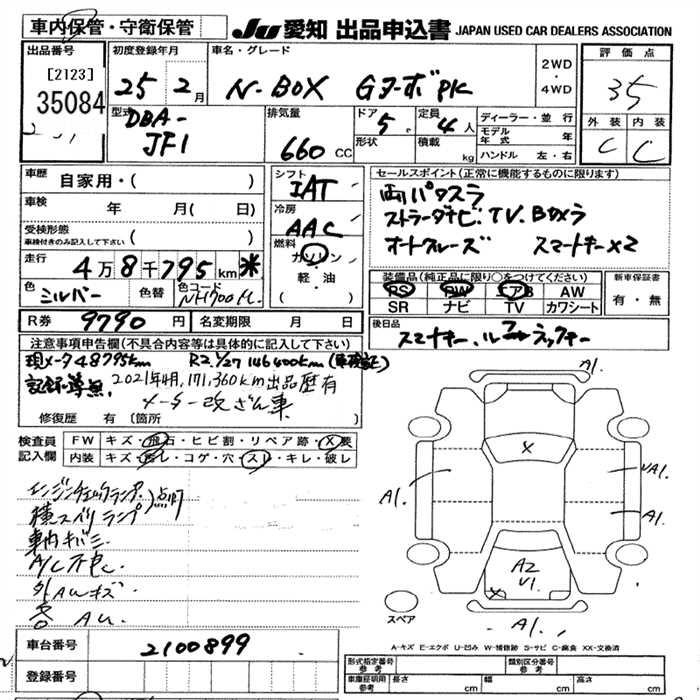 車内保管・守衛保管
JU 愛知 出品申込書 JAPAN USED CAR DEALERS ASSOCIATION
出品番号
[2123]
35084
初度登録年月
25 年 2月
車名・グレード
N-BOX Gターボ PK
2WD
・
4WD
評価点
3.5
外装 内装
C C
型式
DBA-
JF1
排気量
660 CC
ドア 5
形状
定員 4 人
積載 kg
ディーラー・並行
モデル年式 年
ハンドル 左・右
車歴
自家用・( )
車検 年 月( 日)
受検形態
車検付きのみ記入して下さい ( )
走行 4万8千795km *
色 シルバー 色替 色コード NH700M.
シフト
IAT
冷房
AAC
燃料
ガソリン
軽・油
( )
セールスポイント(正常に機能するものに限ります)
両パワスラ
ストラーダナビ、TV、Bカメラ
オートクルーズ スマートキー×2
装備品(純正品に限り○をつけてください)
PS PW エアB AW
SR ナビ TV カワシート
新車保証書
有・無
R券 9790 円 名変期限 月 日
後日品
スマートキー、
注意事項申告欄(不具合内容等は具体的に記入して下さい)
現メータ48795km R2.1/27 146400km(車検証)
記録・導無、2021年4月、171,360km出品歴有
メーター改ざん車
修復歴 有 (箇所 )
検査員記入欄
FW キズ・飛石・ヒビ割・リペア跡・X要
内装 キズ・汚レ・コゲ・穴・スレ・キレ・破レ
エンジンチェックランプ、
横スベリランプ 点灯
車内キバミ
A/C不良
外AUキズ
各AU.
A1.
X
A1.
UA1.
A1.
A2
V1
X
A1.
スペア
A-キズ E-エクボ U-凹み W-補修跡 S-サビ C-腐食 XX-交換済
車台番号 2100899
登録番号
形式指定番号 参考
類別区分番号 参考
車庫証明用 参考 長さ cm 幅 cm 高さ cm